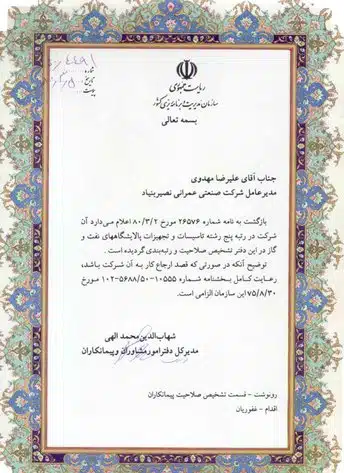 شماره
تاریخ
پیوست
ریاست جمهوری
سازمان مدیریت و برنامه‌ریزی کشور
بسمه تعالی
جناب آقای علیرضا مهدوی
مدیرعامل شرکت صنعتی عمرانی نصیربنیاد
بازگشت به نامه شماره ۲۶۵۷۶ مورخ ۸۰/۳/۲ اعلام می‌دارد آن
شرکت در رتبه پنج رشته تاسیسات و تجهیزات پالایشگاههای نفت و
گاز در این دفتر تشخیص صلاحیت و رتبه‌بندی گردیده است .
توضیح آنکه در صورتی که قصد ارجاع کار به آن شرکت باشد،
رعایت کامل بخشنامه شماره ۱۰۵۵۵-۵۶۸۸/۵۰-۱۰۲ مورخ
۷۵/۸/۳۰ این سازمان الزامی است.
شهاب‌الدین محمد الهی
مدیرکل دفتر امور مشاوران و پیمانکاران
رونوشت - قسمت تشخیص صلاحیت پیمانکاران
اقدام - غفوریان